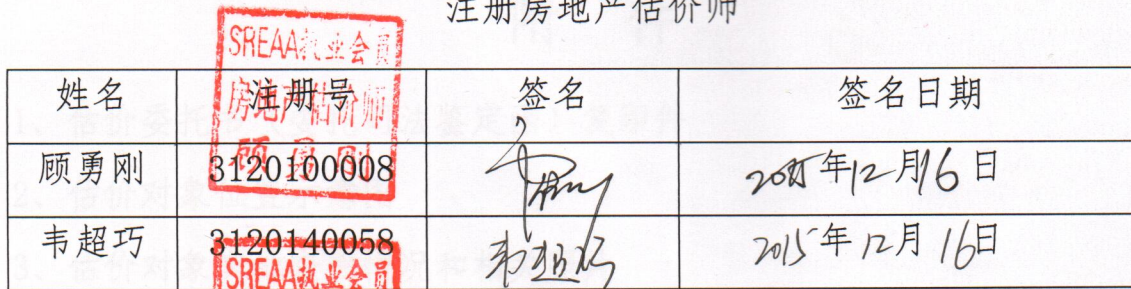 注册房地产估价师
SREAA执业会员
房地产估价师
顾勇刚
姓名 注册号 签名 签名日期
顾勇刚 3120100008 2015年12月16日
韦超巧 3120140058 韦超巧 2015年12月16日
SREAA执业会员